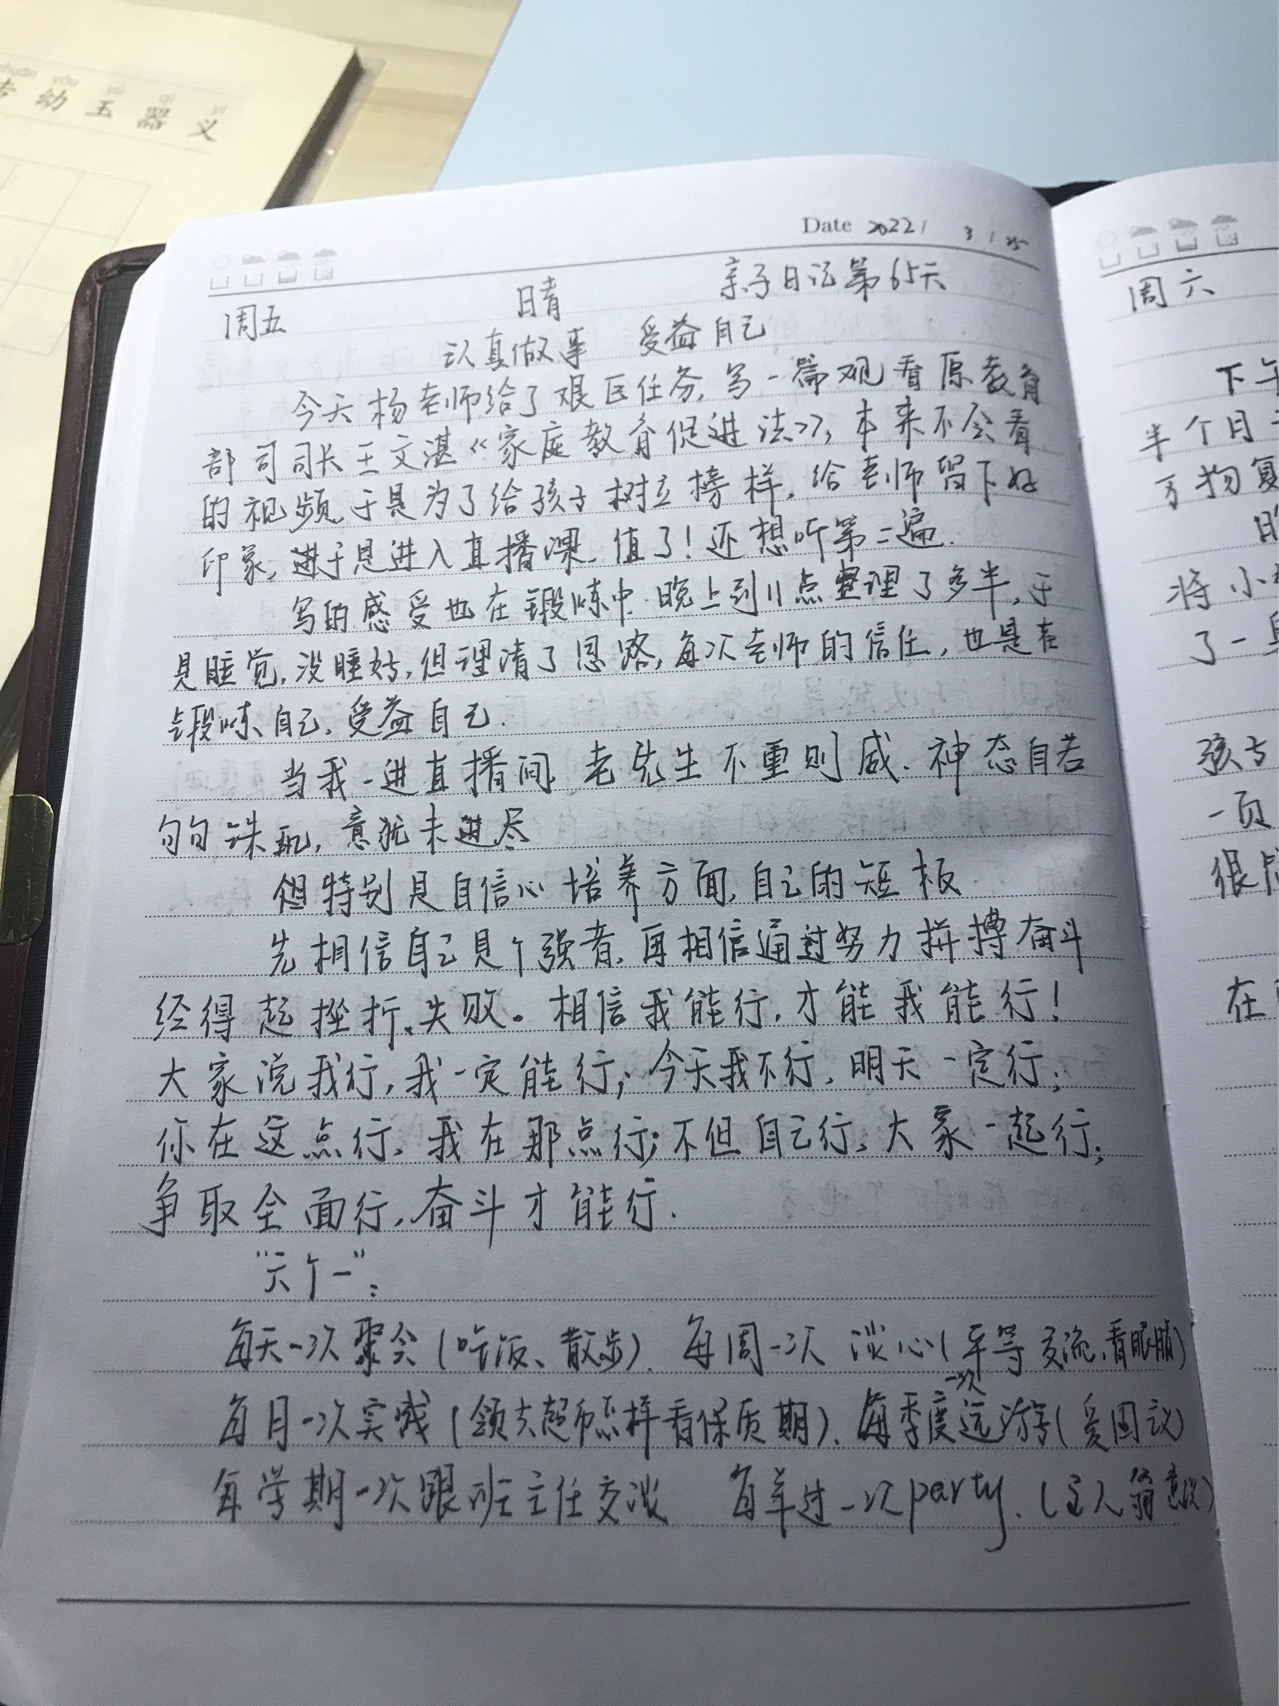 幼 玉 器 义
yòu yù qì yì
Date 2022 / 3 / 25
周五 晴 亲子日记第65天
认真做事 受益自己
今天杨老师给了艰巨任务,写一篇观看原教育
部司司长王文湛《家庭教育促进法》,本来不会看
的视频,于是为了给孩子树立榜样,给老师留下好
印象,于是进入直播课,值了!还想听第二遍.
写的感受也在锻炼中.晚上到11点整理了多半,于
是睡觉,没睡好,但理清了思路,每次老师的信任,也是在
锻炼自己,受益自己.
当我一进直播间,老先生不重则威.神态自若
句句诛玑,意犹未进尽
但特别是自信心培养方面,自己的短板
先相信自己是个强者,再相信通过努力拼搏奋斗
经得起挫折、失败。相信我能行,才能我能行!
大家说我行,我一定能行;今天我不行,明天一定行;
你在这点行,我在那点行;不但自己行,大家一起行;
争取全面行,奋斗才能行.
“六个一”:
每天一次聚会(吃饭、散步).每周一次谈心(平等交流,看眼睛)
每月一次实践(领去超市怎样看保质期).每季度一次远游(爱国议)
每学期一次跟班主任交谈 每年过一次party.(主人翁意识)
周六
下午
半个月
万物复
将小
了一
孩
一页
很
在